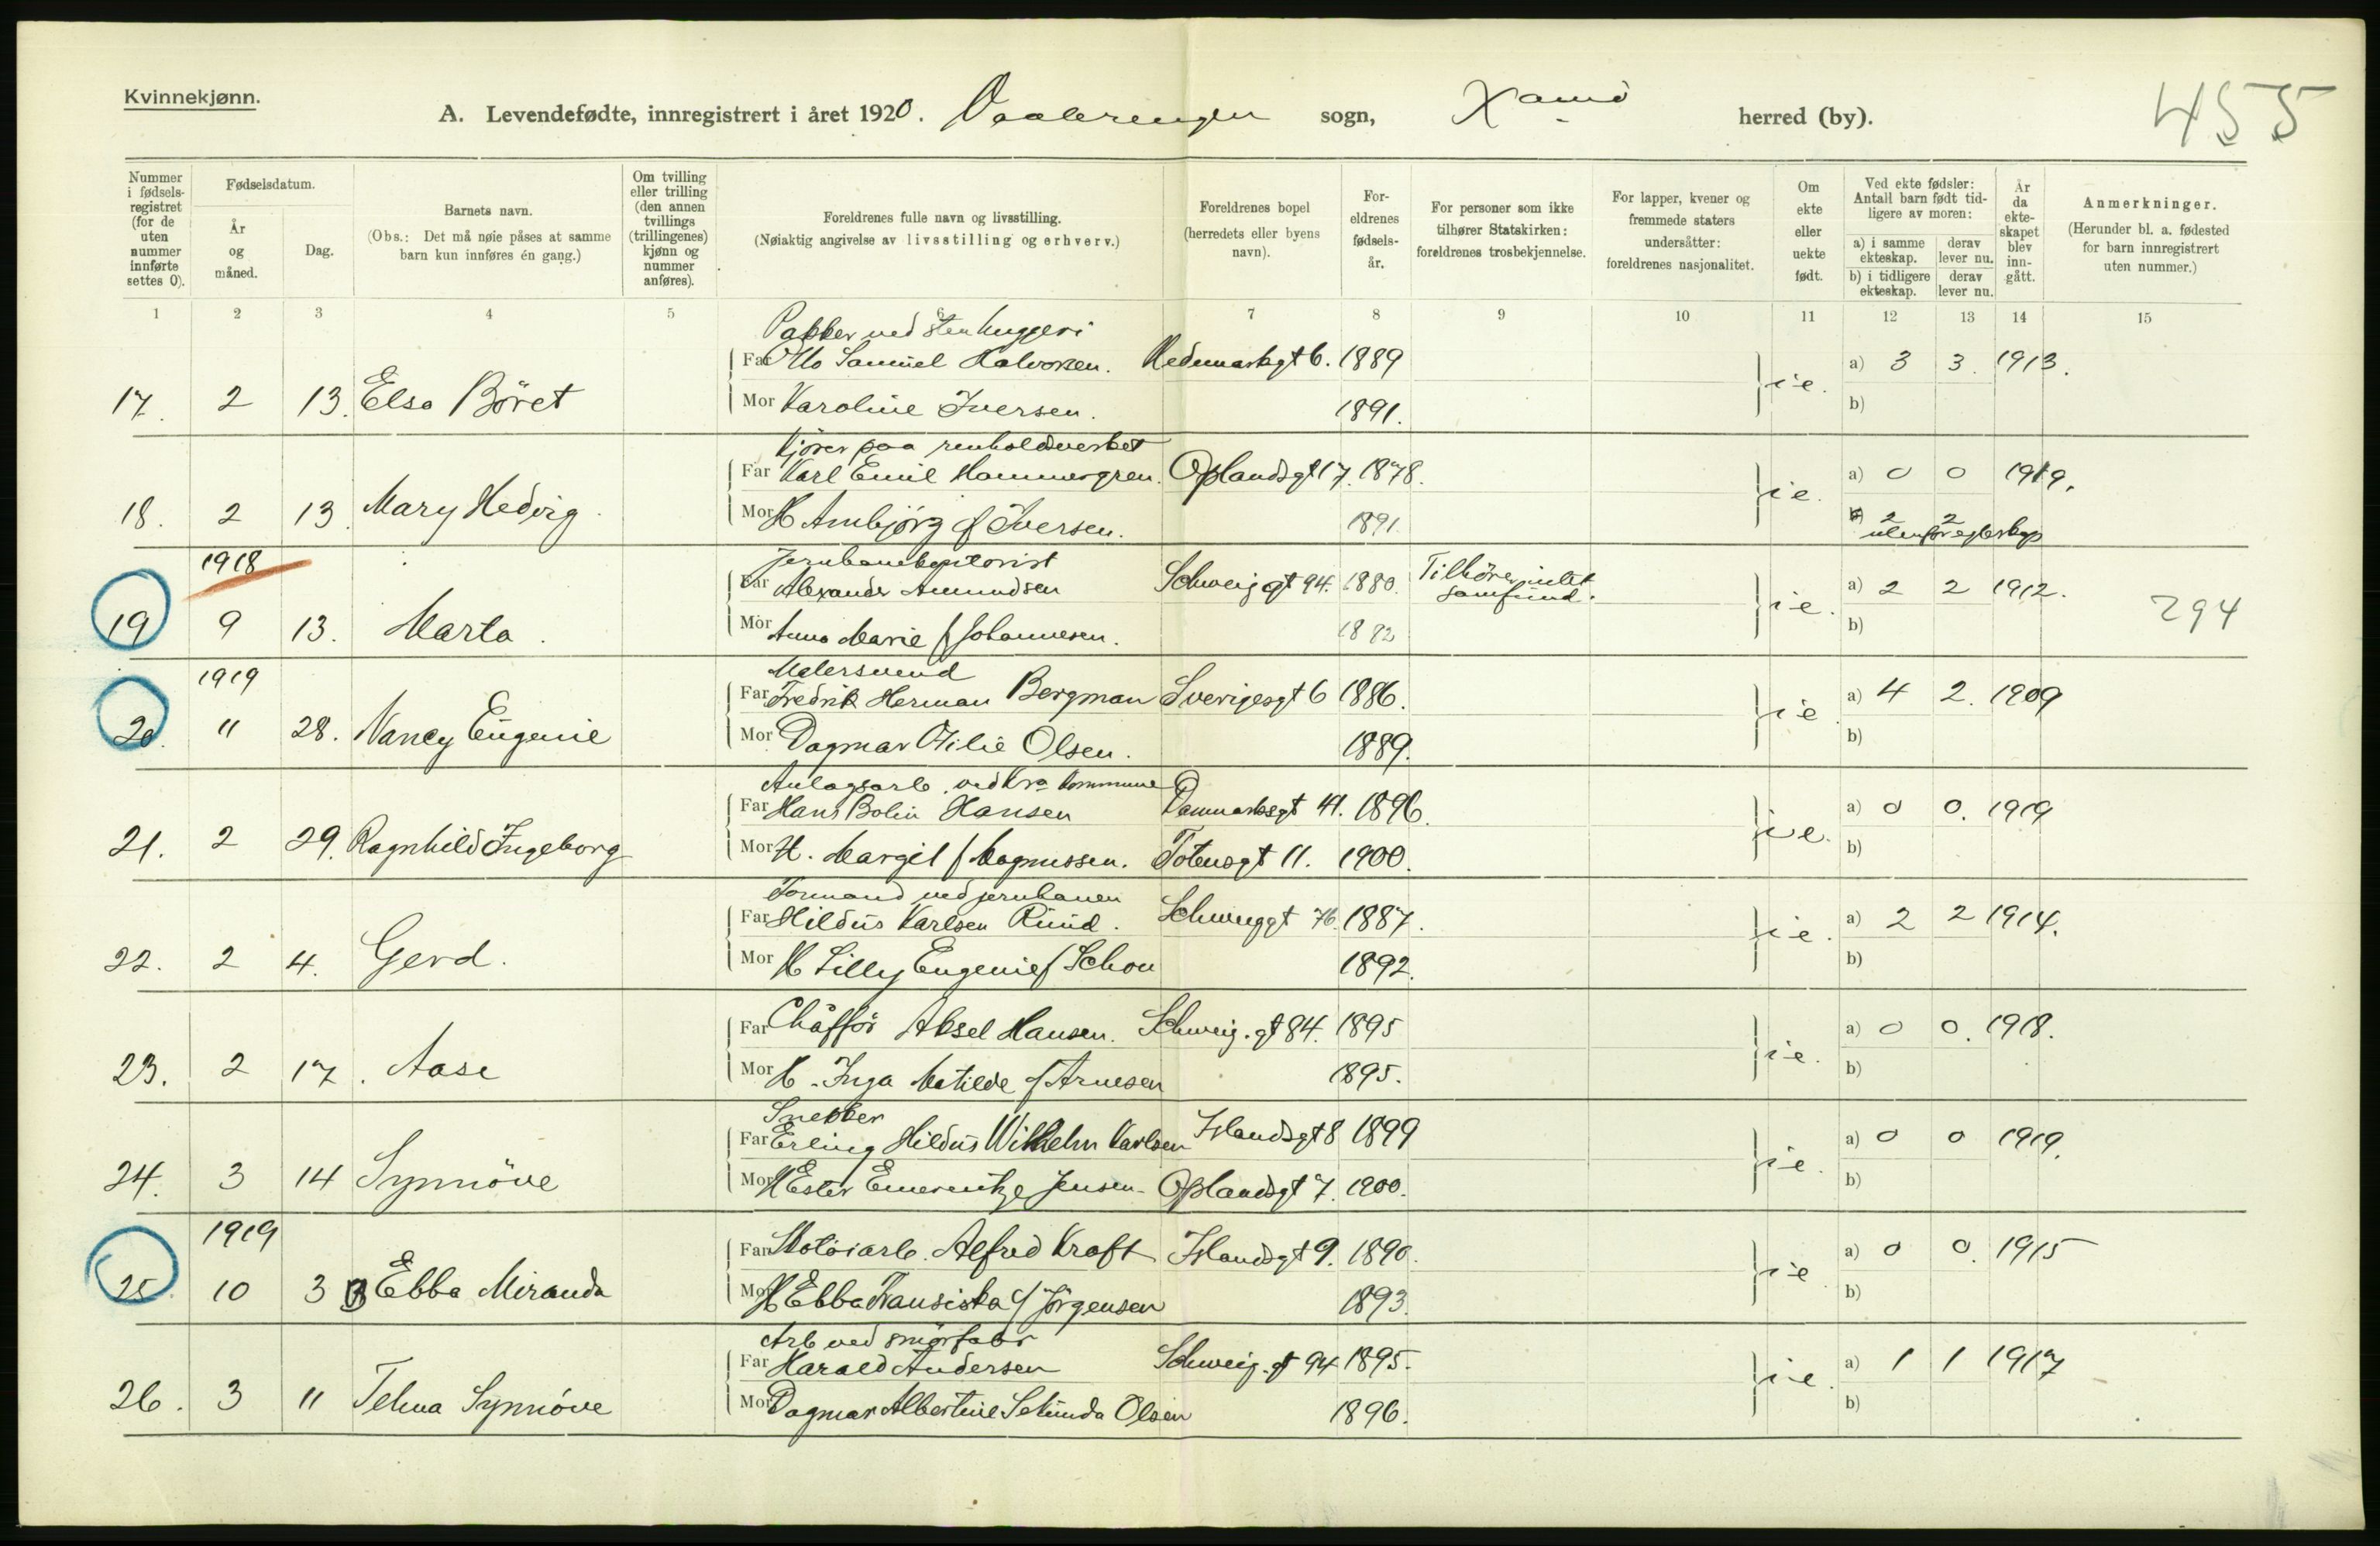 Kvinnekjønn.
A. Levendefødte, innregistrert i året 1920. Vaalerengen sogn, Xania herred (by).
455
Nummer i fødselsregistret (for de uten nummer innførte settes 0).
Fødselsdatum.
År og måned.
Dag.
Barnets navn.
(Obs.: Det må nøie påses at samme barn kun innføres én gang.)
Om tvilling eller trilling (den annen tvillings (trillingenes) kjønn og nummer anføres).
Foreldrenes fulle navn og livsstilling.
(Nøiaktig angivelse av livsstilling og erhverv.)
Foreldrenes bopel (herredets eller byens navn).
Foreldrenes fødselsår.
For personer som ikke tilhører Statskirken: foreldrenes trosbekjennelse.
For lapper, kvener og fremmede staters undersåtter: foreldrenes nasjonalitet.
Om ekte eller uekte født.
Ved ekte fødsler: Antall barn født tidligere av moren:
a) i samme ekteskap. derav lever nu.
b) i tidligere ekteskap. derav lever nu.
År da ekteskapet blev inngått.
Anmerkninger.
(Herunder bl. a. fødested for barn innregistrert uten nummer.)
1 2 3 4 5 7 8 9 10 11 12 13 14 15
Pakker ved Stenhuggeri
Far Otto Samuel Halvorsen. Hedemarksgt 6. 1889 a) 3 3. 1913.
17. 2 13. Elsa Böret Mor Karoline Iversen. 1891. e. b)
Kjører paa renholdsverket
Far Karl Emil Hammergren. Oplandsgt 17. 1878. a) 0 0 1919.
18. 2 13. Mary Hedvig. Mor H Arnbjörg f Iversen. 1891. e. b) 2 2
utenfor egteskap
1918 Jernbaneekspeditorist
Far Alexander Amundsen Schweig gt 94. 1880. Tilhører intet samfund. a) 2 2 1912.
19 9 13. Marta. Mor Anna Marie f Johannesen. 1882 e. b) 294
1919 Malersvend
Far Fredrik Herman Bergman Sverigesgt 6 1886. a) 4 2. 1909
20. 11 28. Nancy Eugenie Mor Dagmar Otilie Olsen. 1889. e b)
Anlagsarb. ved Kra kommune
Far Hans Bolin Hansen Danmarksgt 41. 1896. a) 0 0. 1919
21. 2 29. Ragnhild Ingeborg Mor H. Margit f Magnussen. Totensgt 11. 1900. e. b)
Formand ved jernbanen
Far Hildus Karlsen Ruud. Schweiggt 76. 1887. a) 2 2 1914.
22. 2 4. Gerd. Mor H Lilly Eugenie f Schou 1892. e. b)
Far Chåffør Aksel Hansen. Schweig. gt 84. 1895 a) 0 0. 1918.
23. 2 17. Aase Mor H. Inga Matilde f Arnesen 1895. e. b)
Snekker
Far Erling Hildus Wilhelm Karlsen Islandsgt 8 1899 a) 0 0 1919.
24. 3 14 Synnöve Mor H Ester Emerentze Jensen. Oplandsgt 7. 1900. e. b)
1919
Far Motorarb. Alfred Kraft Islandsgt 9. 1890. a) 0 0. 1915
25. 10 3 Ebba Miranda Mor H Ebba Fransiska f Jörgensen 1893. e b)
Arb ved smörfabr
Far Harald Andersen Schweig. gt 94 1895. a) 1 1 1917
26. 3 11 Telma Synnöve Mor Dagmar Albertine Sekunda Olsen 1896. e. b)